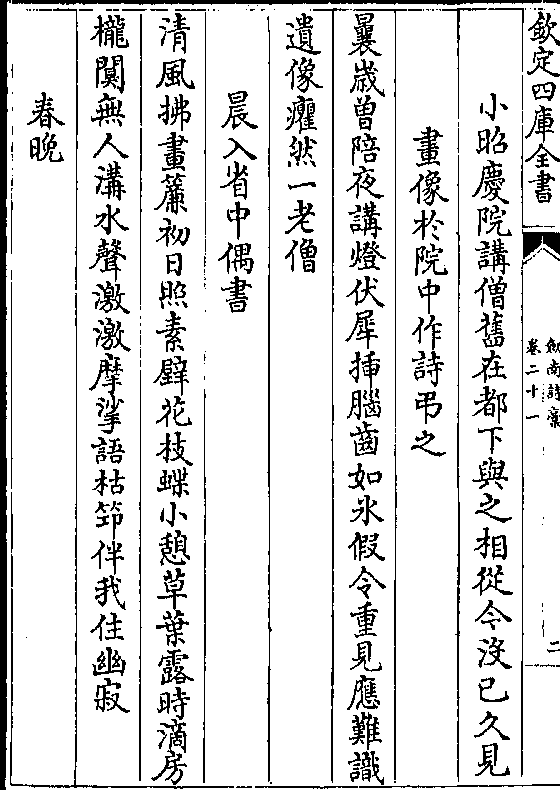 欽定四庫全書
劍南詩藁
卷二十一
二
小昭慶院講僧舊在都下與之相從今沒已久見
畫像於院中作詩弔之
曩歲曾陪夜講燈伏犀揷腦齒如氷假令重見應難識
遺像癯然一老僧
晨入省中偶書
清風拂畫簾初日照素壁花枝蝶小憩草葉露時滴房
櫳闃無人溝水聲激激摩挲語枯笻伴我住幽寂
春晩